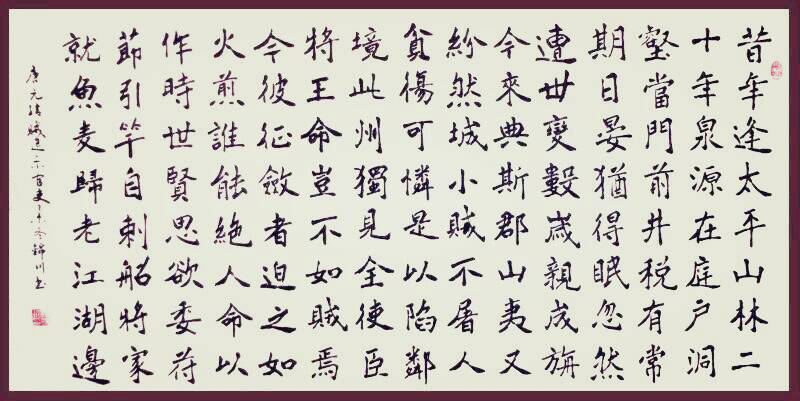 昔年逢太平山林二
十年泉源在庭戶洞
壑當門前井稅有常
期日晏猶得眠忽然
遭世變數歲親戎旃
今來典斯郡山夷又
紛然城小賊不屠人
貧傷可憐是以陷鄰
境此州獨見全使臣
將王命豈不如賊焉
今彼征斂者迫之如
火煎誰能絕人命以
作時世賢思欲委符
節引竿自刺船將家
就魚麦歸老江湖邊
唐元結賊退示官吏 冬錦川書